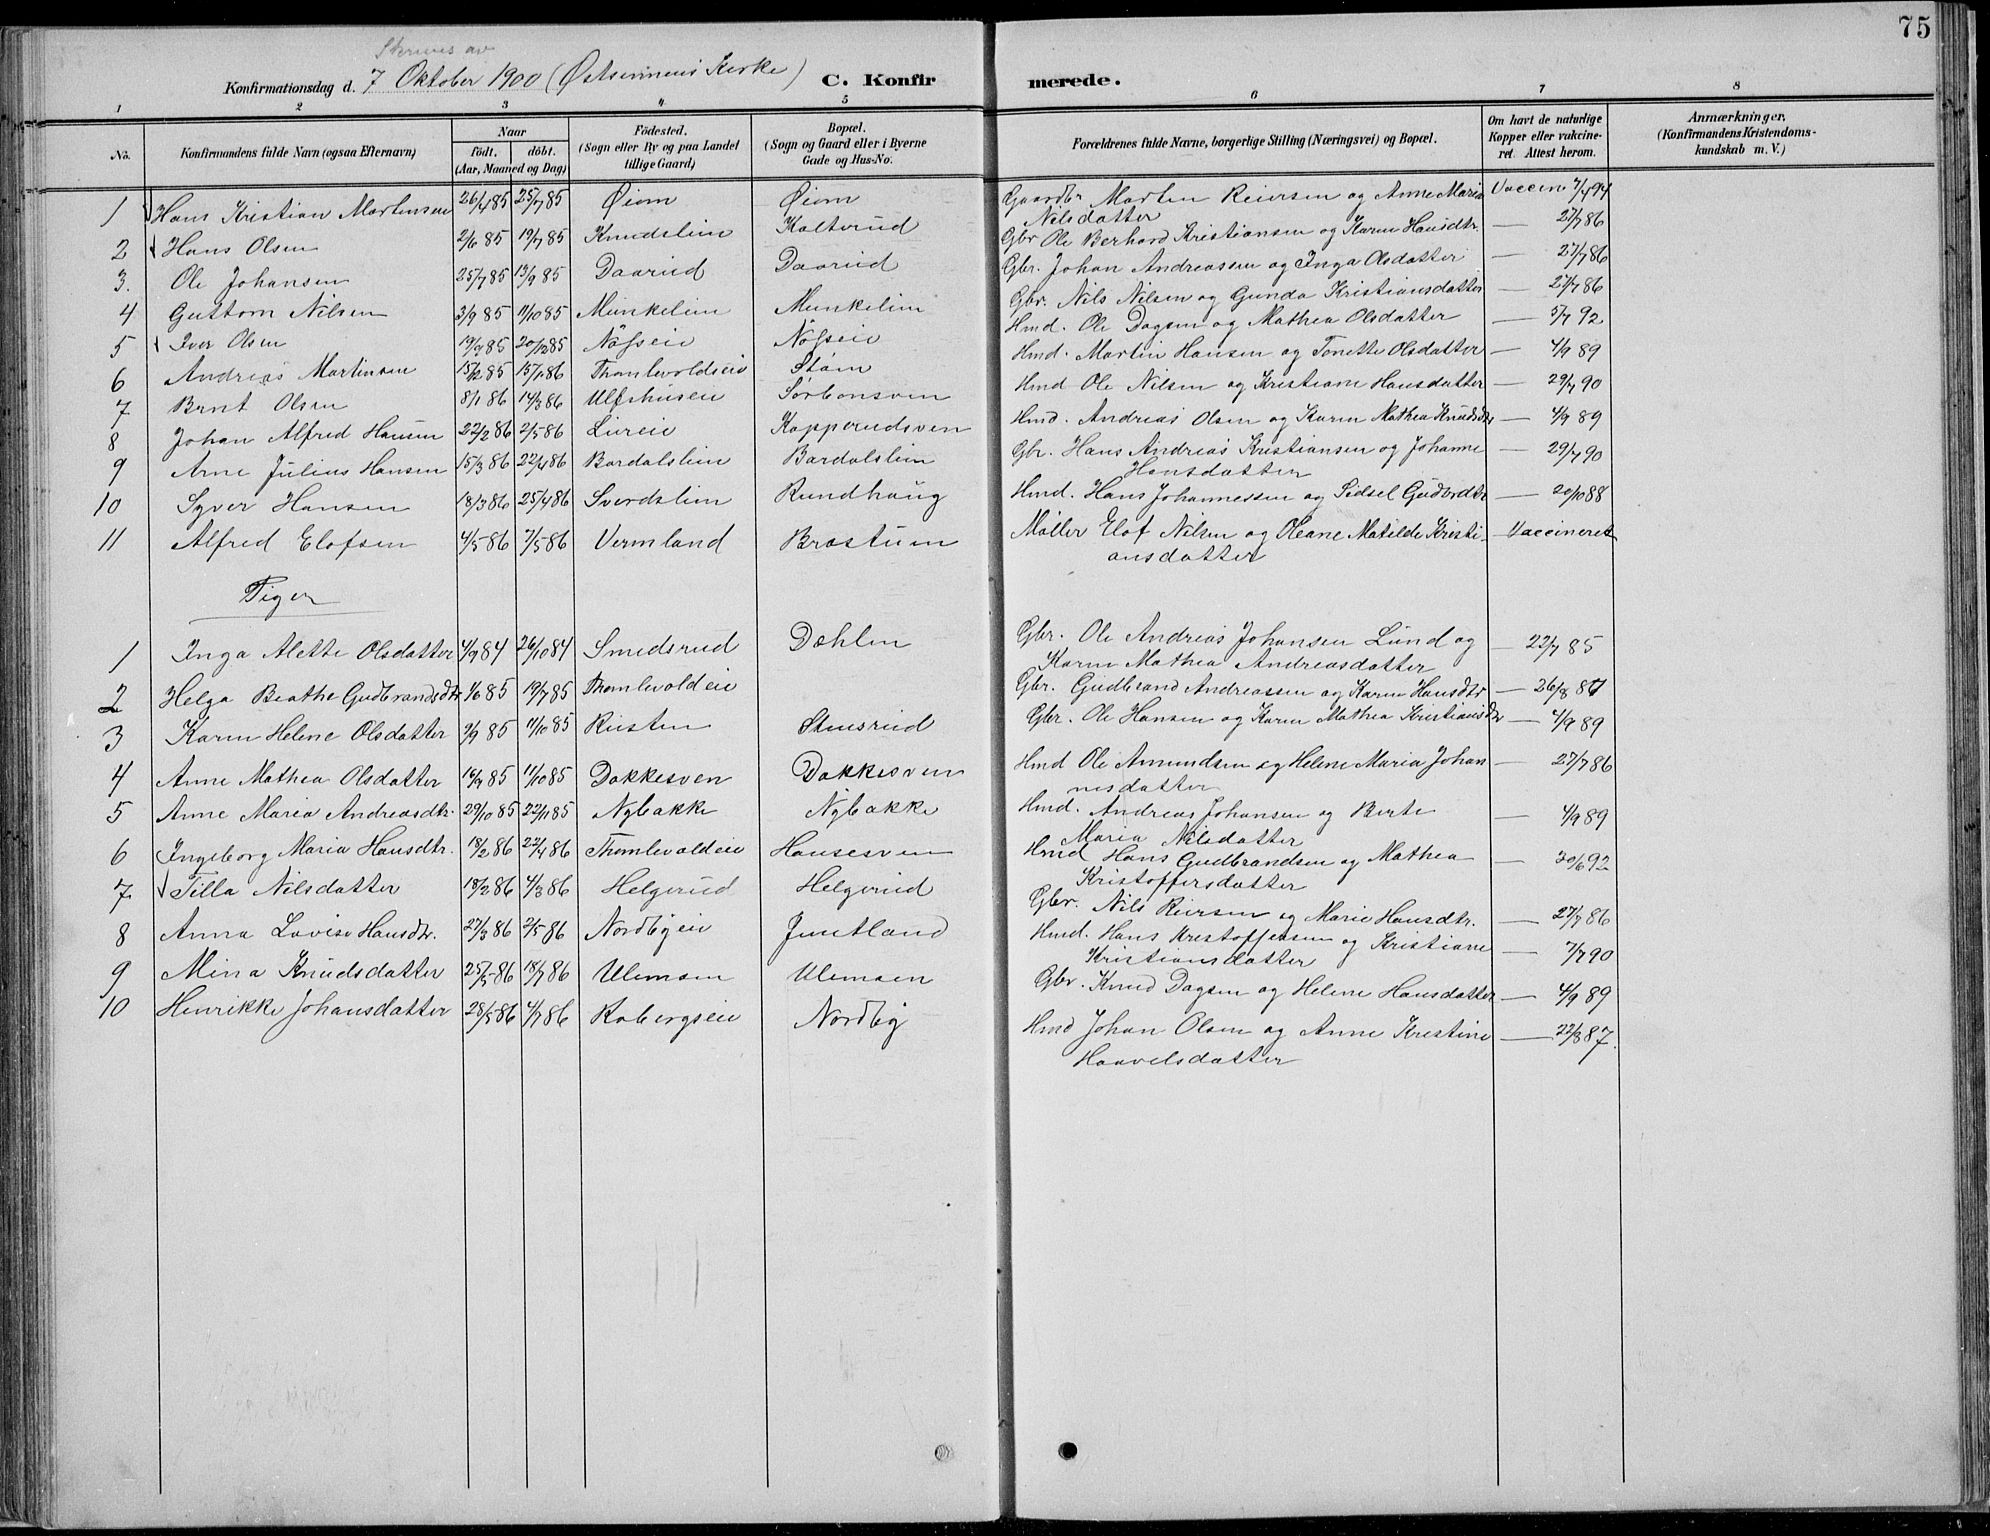 75
Skrives av
Konfirmationsdag d. 7 Oktober 1900 (Østsinnens Kirke) C. Konfirmerede.
1 2 3 4 5 6 7 8
No. Konfirmandens fulde Navn (ogsaa Efternavn) Naar født. døbt. (Aar, Maaned og Dag) Fødested. (Sogn eller By og paa Landet tillige Gaard) Bopæl. (Sogn og Gaard eller i Byerne Gade og Hus-No. Forældrenes fulde Navne, borgerlige Stilling (Næringsvei) og Bopæl. Om havt de naturlige Kopper eller vaccineret. Attest herom. Anmærkninger. (Konfirmandens Kristendomskundskab m. V.)
1 Hans Kristian Martinsen 26/4 85 25/7 85 Øiom Øiom Gaardbr Martin Reiersen og Anne Maria Nilsdatter Vaccine 7/4 94
2 Hans Olsen 2/6 85 19/7 85 Knudslien Kolterud Gbr Ole Berhard Kristiansen og Karen Hansdtr. — 27/7 86
3. Ole Johansen 25/7 85 13/9 85 Daarud Daarud Gbr. Johan Andreassen og Inga Olsdatter — 27/7 86
4 Guttorm Nilsen 3/9 85 11/10 85 Munkelien Munkelien Gbr. Nils Nilsen og Gunda Kristiansdatter — 27/7 86
5 Iver Olsen 19/9 85 20/12 85 Nøsseie Nøsseie Hmd. Ole Dagsen og Mathea Olsdatter — 5/7 92
6 Andreas Martinsen 15/12 85 15/1 86 Thomlevoldseie Støm Hmd. Martin Hansen og Tonette Olsdatter — 4/9 89
7 Brnt Olsen 8/1 86 14/3 86 Ulfshuseie Sørbonsven Hmd Ole Nilsen og Kristiane Hansdatter — 29/7 90
8 Johan Alfred Hansen 22/2 86 2/5 86 Liereie Kopperudsven Hmd. Andreas Olsen og Karen Mathea Knudsdtr — 4/9 89
9 Arne Julius Hansen 15/3 86 22/4 86 Bardalslien Bardalslien Gbr. Hans Andreas Kristiansen og Johanne Hansdatter — 29/7 90
10 Syver Hansen 18/3 86 25/4 86 Sverdslien Rundhaug Hmd. Hans Johannessen og Sidsel Gudbrdtr — 20/10 88
11 Alfred Elofsen 4/5 86 7/5 86 Vermland Braastum Møller Elof Nilsen og Oleane Matilde Kristiansdatter — Vaccineret
Piger
1 Inga Alette Olsdatter 4/9 84 26/10 84 Smedsrud Dæhlen Gbr. Ole Andreas Johansen Lund og Karen Mathea Andreasdatter — 22/7 85
2 Helga Beathe Gudbrandsdtr 1/6 85 19/7 85 Thomlevoldeie Gbr. Gudbrand Andreassen og Karen Hansdtr — 26/8 87
3 Karen Helene Olsdatter 9/9 85 11/10 85 Rusten Stensrud Gbr. Ole Hansen og Karen Mathea Kristiansdtr — 4/9 89
4 Anne Mathea Olsdatter 16/9 85 11/10 85 Dokkesven Dokkesven Hmd Ole Amundsen og Helene Maria Johannesdatter — 27/7 86
5 Anne Maria Andreasdtr. 29/10 85 22/11 85 Nybakke Nybakke Hmd. Andreas Johansen og Berte Maria Nilsdatter — 4/9 89
6 Ingeborg Maria Hansdtr. 18/2 86 22/4 86 Thomlevoldeie Hansesven Hmd Hans Gudbrandsen og Mathea Kristoffersdatter — 30/6 92
7 Tilla Nilsdatter 18/2 86 4/3 86 Helgerud Helgerud Gbr. Nils Reiersen og Marie Hansdtr. — 27/7 86
8 Anna Lovise Hansdtr. 27/3 86 2/5 86 Nordbyeie Juvtland Hmd. Hans Kristoffersen og Kristiane Kristiansdatter — 7/7 90
9 Mina Knudsdatter 25/5 86 18/7 86 Ulemoen Ulemoen Gbr. Knud Dagsen og Helene Hansdatter — 4/9 89
10 Henrikke Johansdatter 28/5 86 4/7 86 Kobergseie Nordby Hmd Johan Olsen og Anne Kristine Haavelsdatter — 22/3 87.